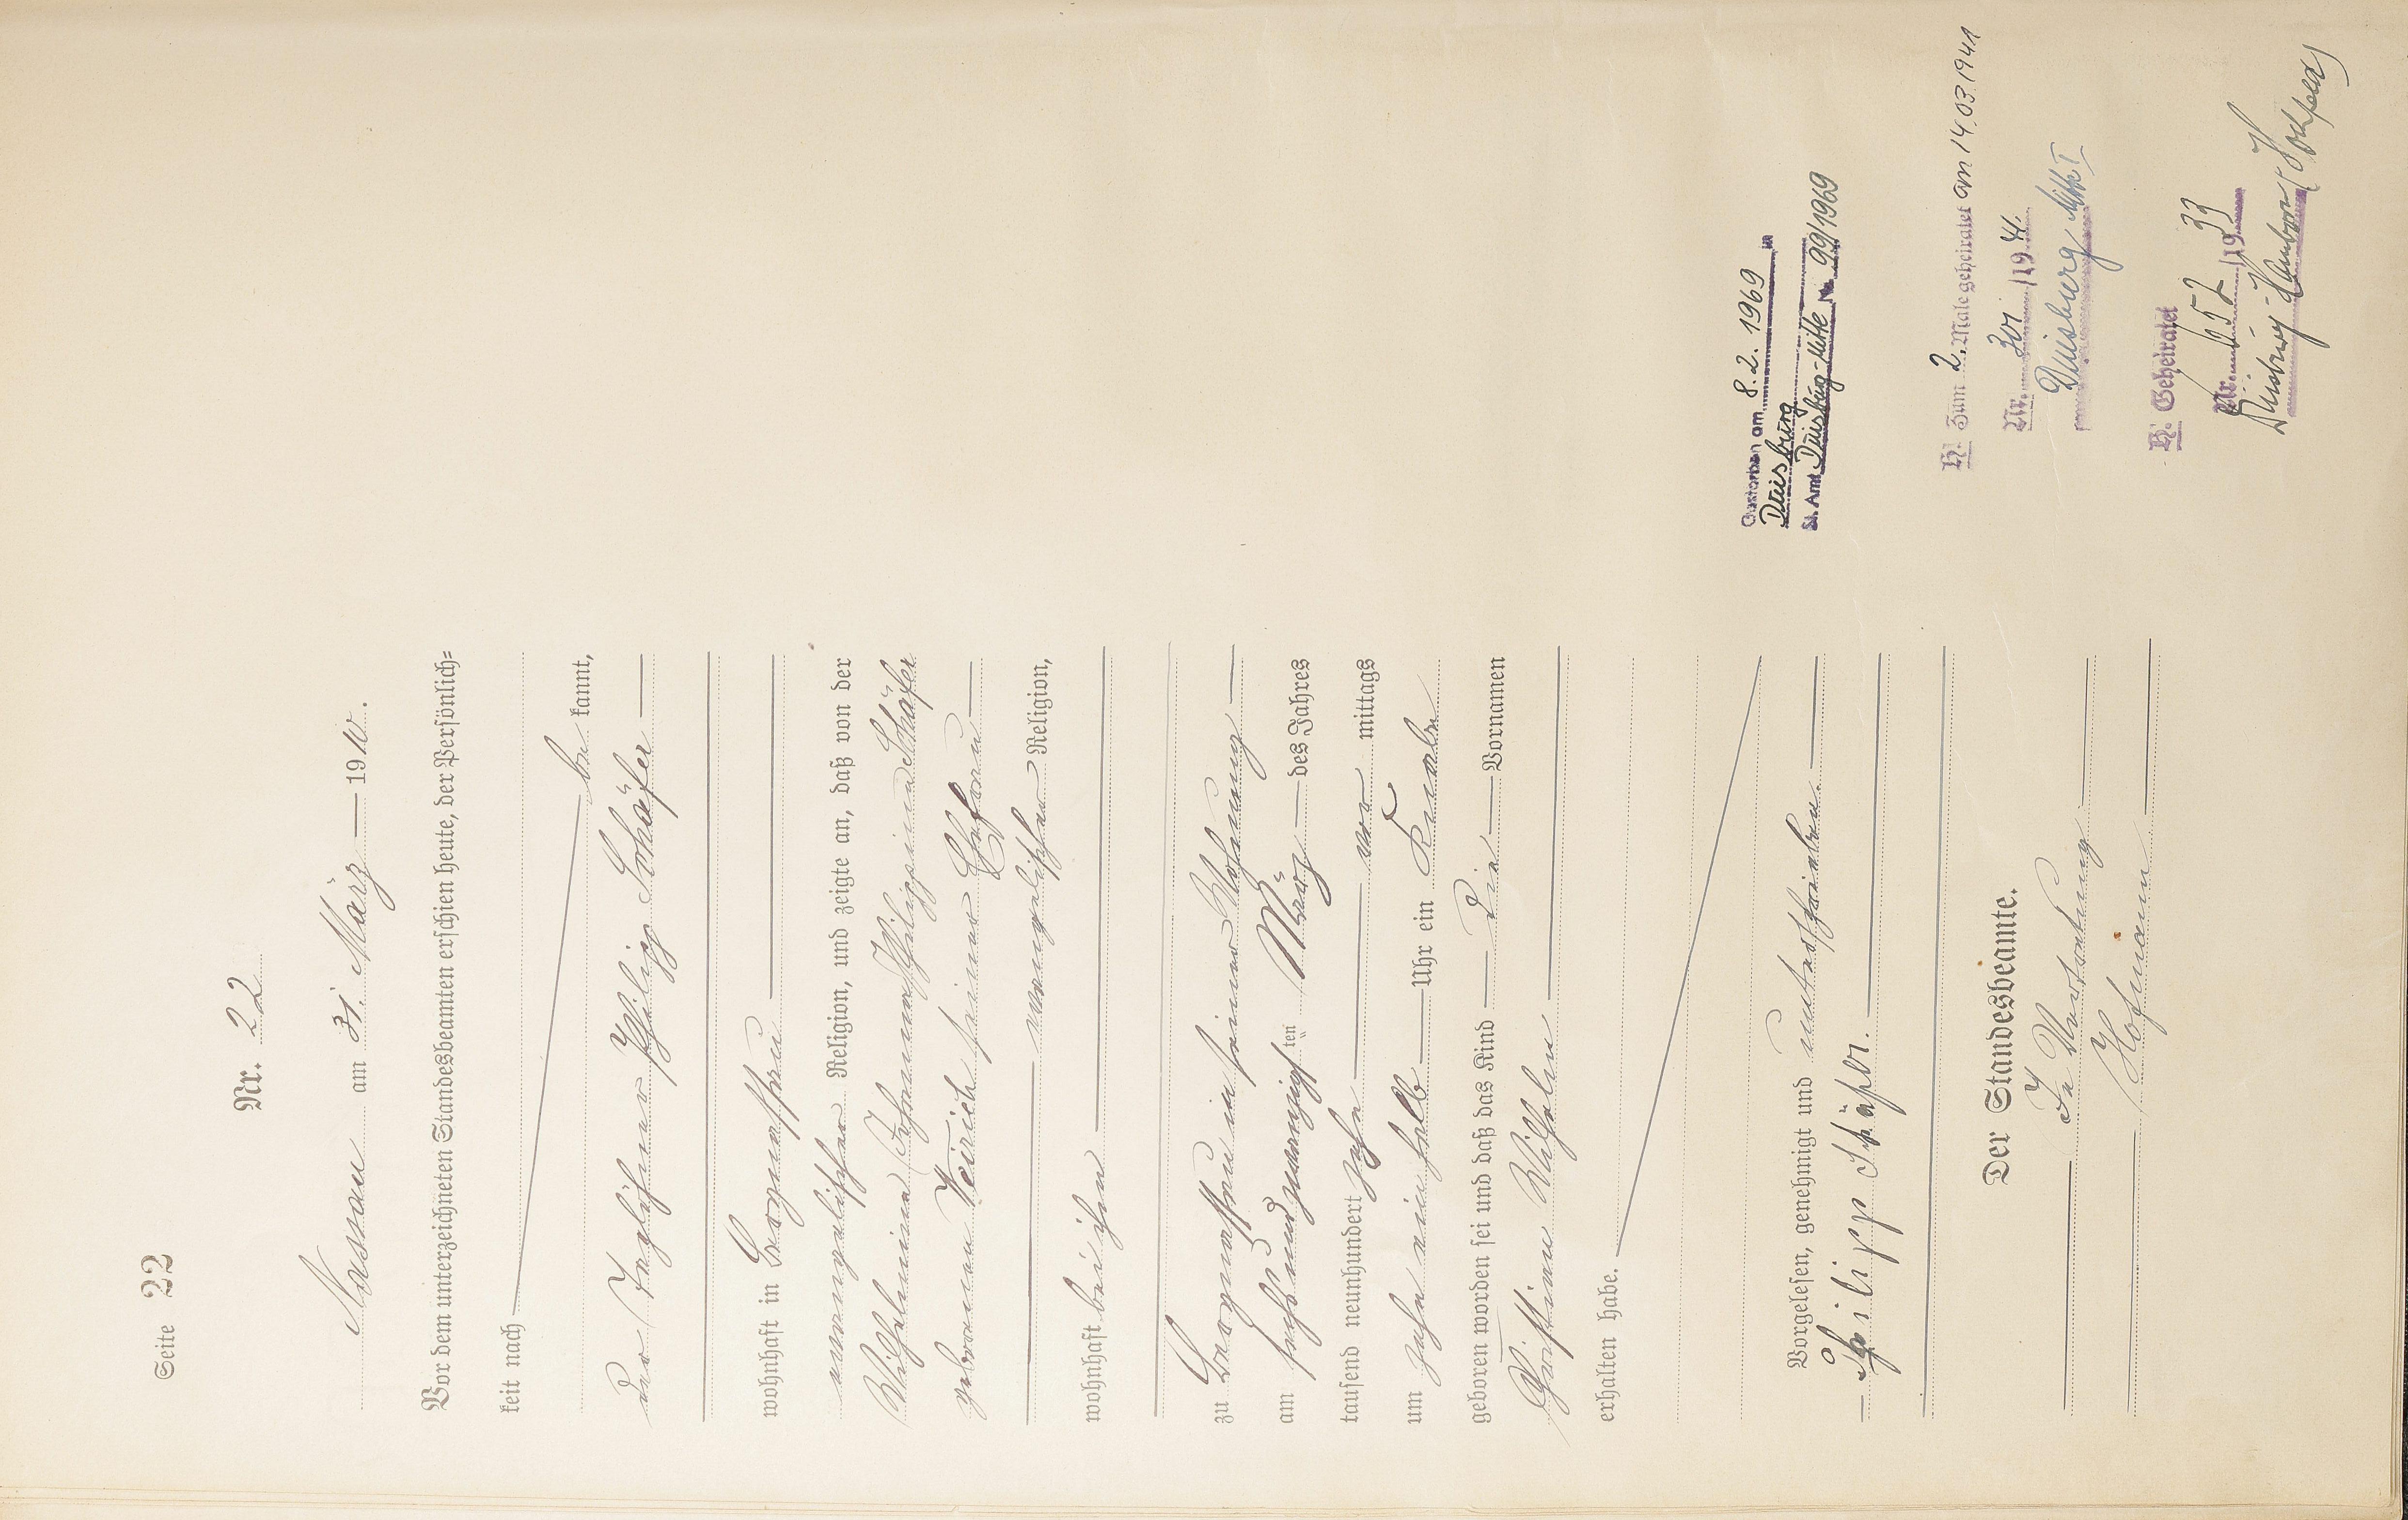 Seite 22
Nr. 22
Nassau am 31. März 1910.
Vor dem unterzeichneten Standesbeamten erschien heute, der Persönlich=
keit nach
be kannt,
der Taglöhner Philipp Schäfer
wohnhaft in Bergnassau
evangelischer Religion, und zeigte an, daß von der
Wilhelmine Philippine Schäfer
geborenen seiner Ehefrau
evangelischer Religion,
wohnhaft bei ihm
zu Bergnassau in seiner Wohnung
am sechsundzwanzigsten März des Jahres
tausend neunhundert zehn vor mittags
um zehn ein halb Uhr ein Knabe
geboren worden sei und daß das Kind die Vornamen
Christian Wilhelm
erhalten habe.
Vorgelesen, genehmigt und unterschrieben.
Philipp Schäfer.
Der Standesbeamte.
In Vertretung
Hofmann
Gestorben am 8.2.1969 in
Duisburg
St. Amt Duisburg-Mitte Nr. 99/1969
H. Zum 2. Male geheiratet am 14.03.1941
Nr. 301/1941.
Duisburg Mitte I
H. Geheiratet
Nr. 652/1933
Duisburg-Hamborn (Hochfeld)